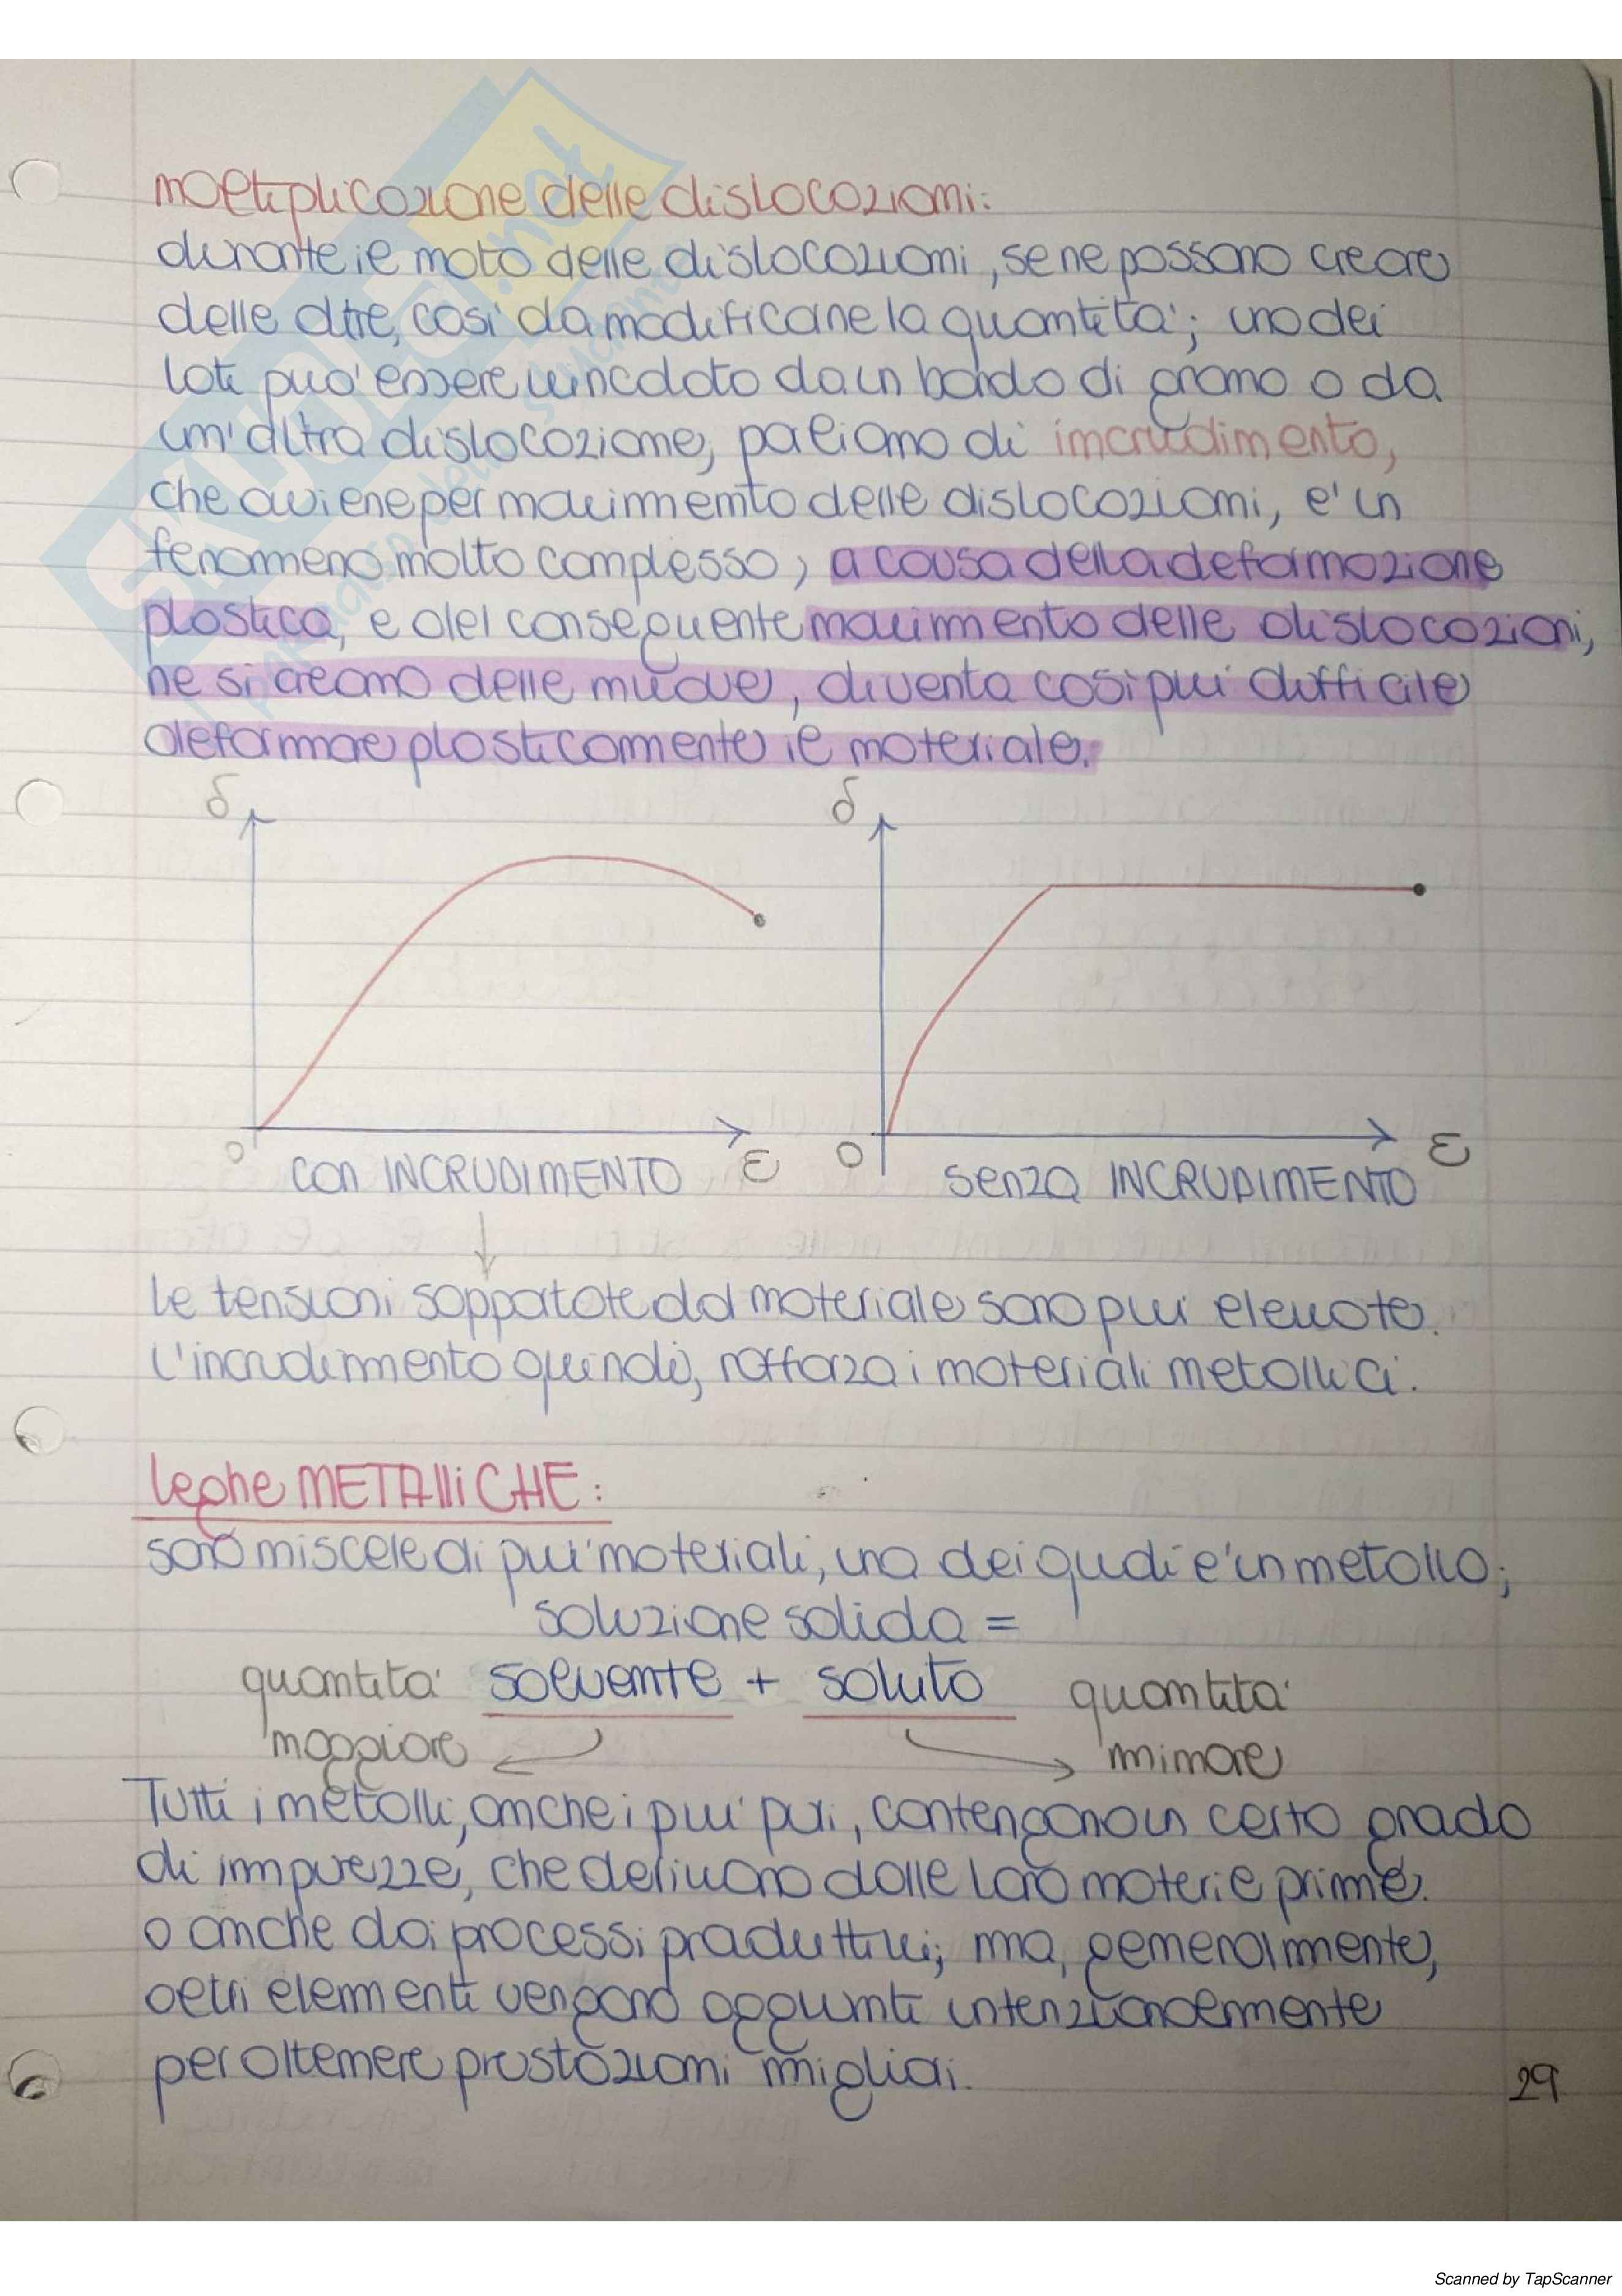 moltiplicazione delle dislocazioni:
durante il moto delle dislocazioni, se ne possono creare
delle altre, così da modificarne la quantità; uno dei
lati può essere vincolato da un bordo di grano o da
un'altra dislocazione, parliamo di incrudimento,
che avviene per movimento delle dislocazioni, e' un
fenomeno molto complesso, a causa della deformazione
plastica, e del conseguente movimento delle dislocazioni,
ne si creano delle nuove, diventa così più difficile
deformare plasticamente il materiale.
δ δ
0 CON INCRUDIMENTO ε 0 senza INCRUDIMENTO ε
le tensioni sopportate dal materiale sono più elevate.
L'incrudimento quindi, rafforza i materiali metallici.
leghe METALLICHE:
sono miscele di più materiali, uno dei quali e' un metallo;
soluzione solida =
quantità solvente + soluto quantità
maggiore minore
Tutti i metalli, anche i più puri, contengono un certo grado
di impurezze, che derivano dalle loro materie prime.
o anche dai processi produttivi; ma, generalmente,
altri elementi vengono aggiunti intenzionalmente
per ottenere prestazioni migliori.
29
Scanned by TapScanner